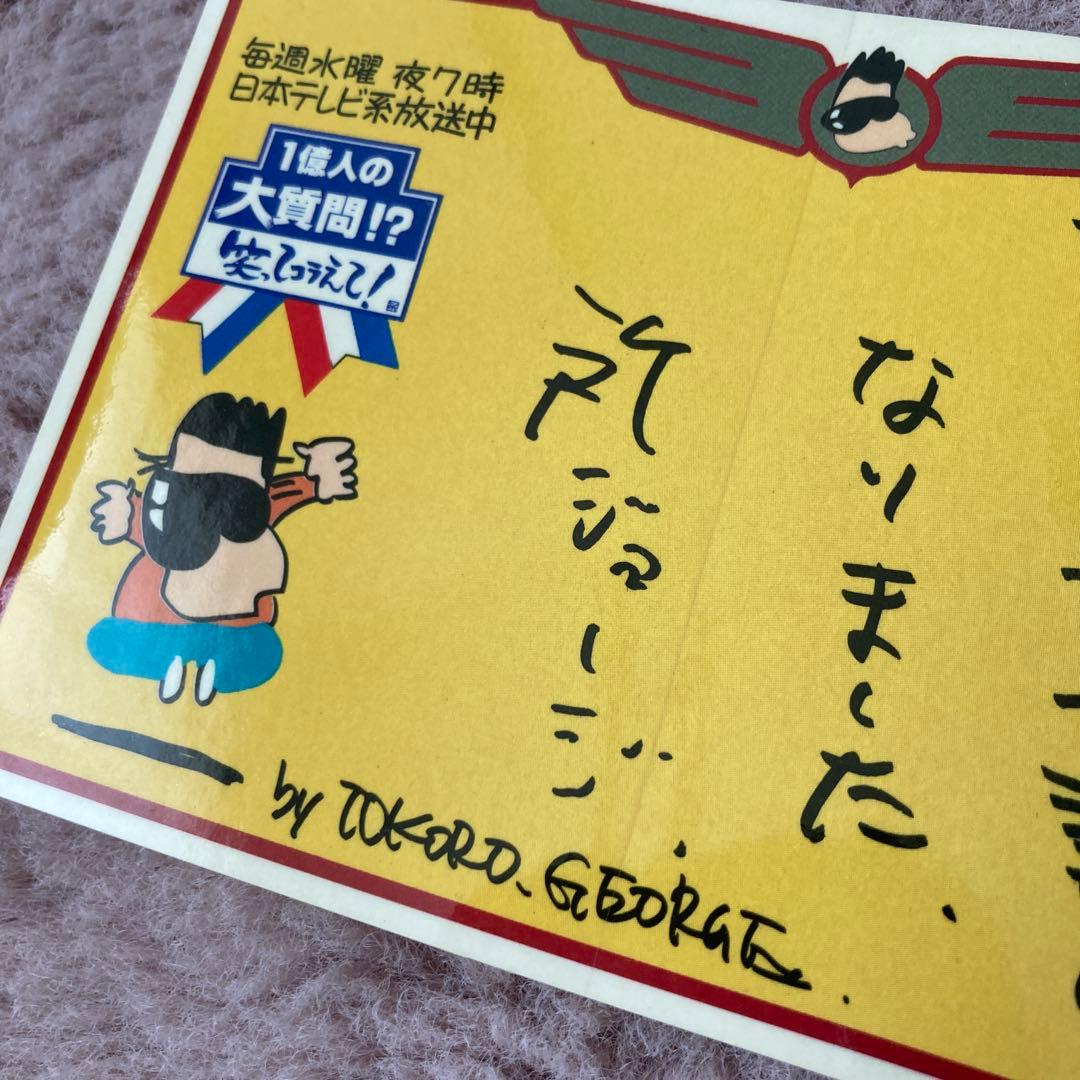 毎週水曜 夜7時
日本テレビ系放送中
1億人の
大質問!?
笑ってコラえて!
なりました
所ジョージ
by TOKORO.GEORGE.